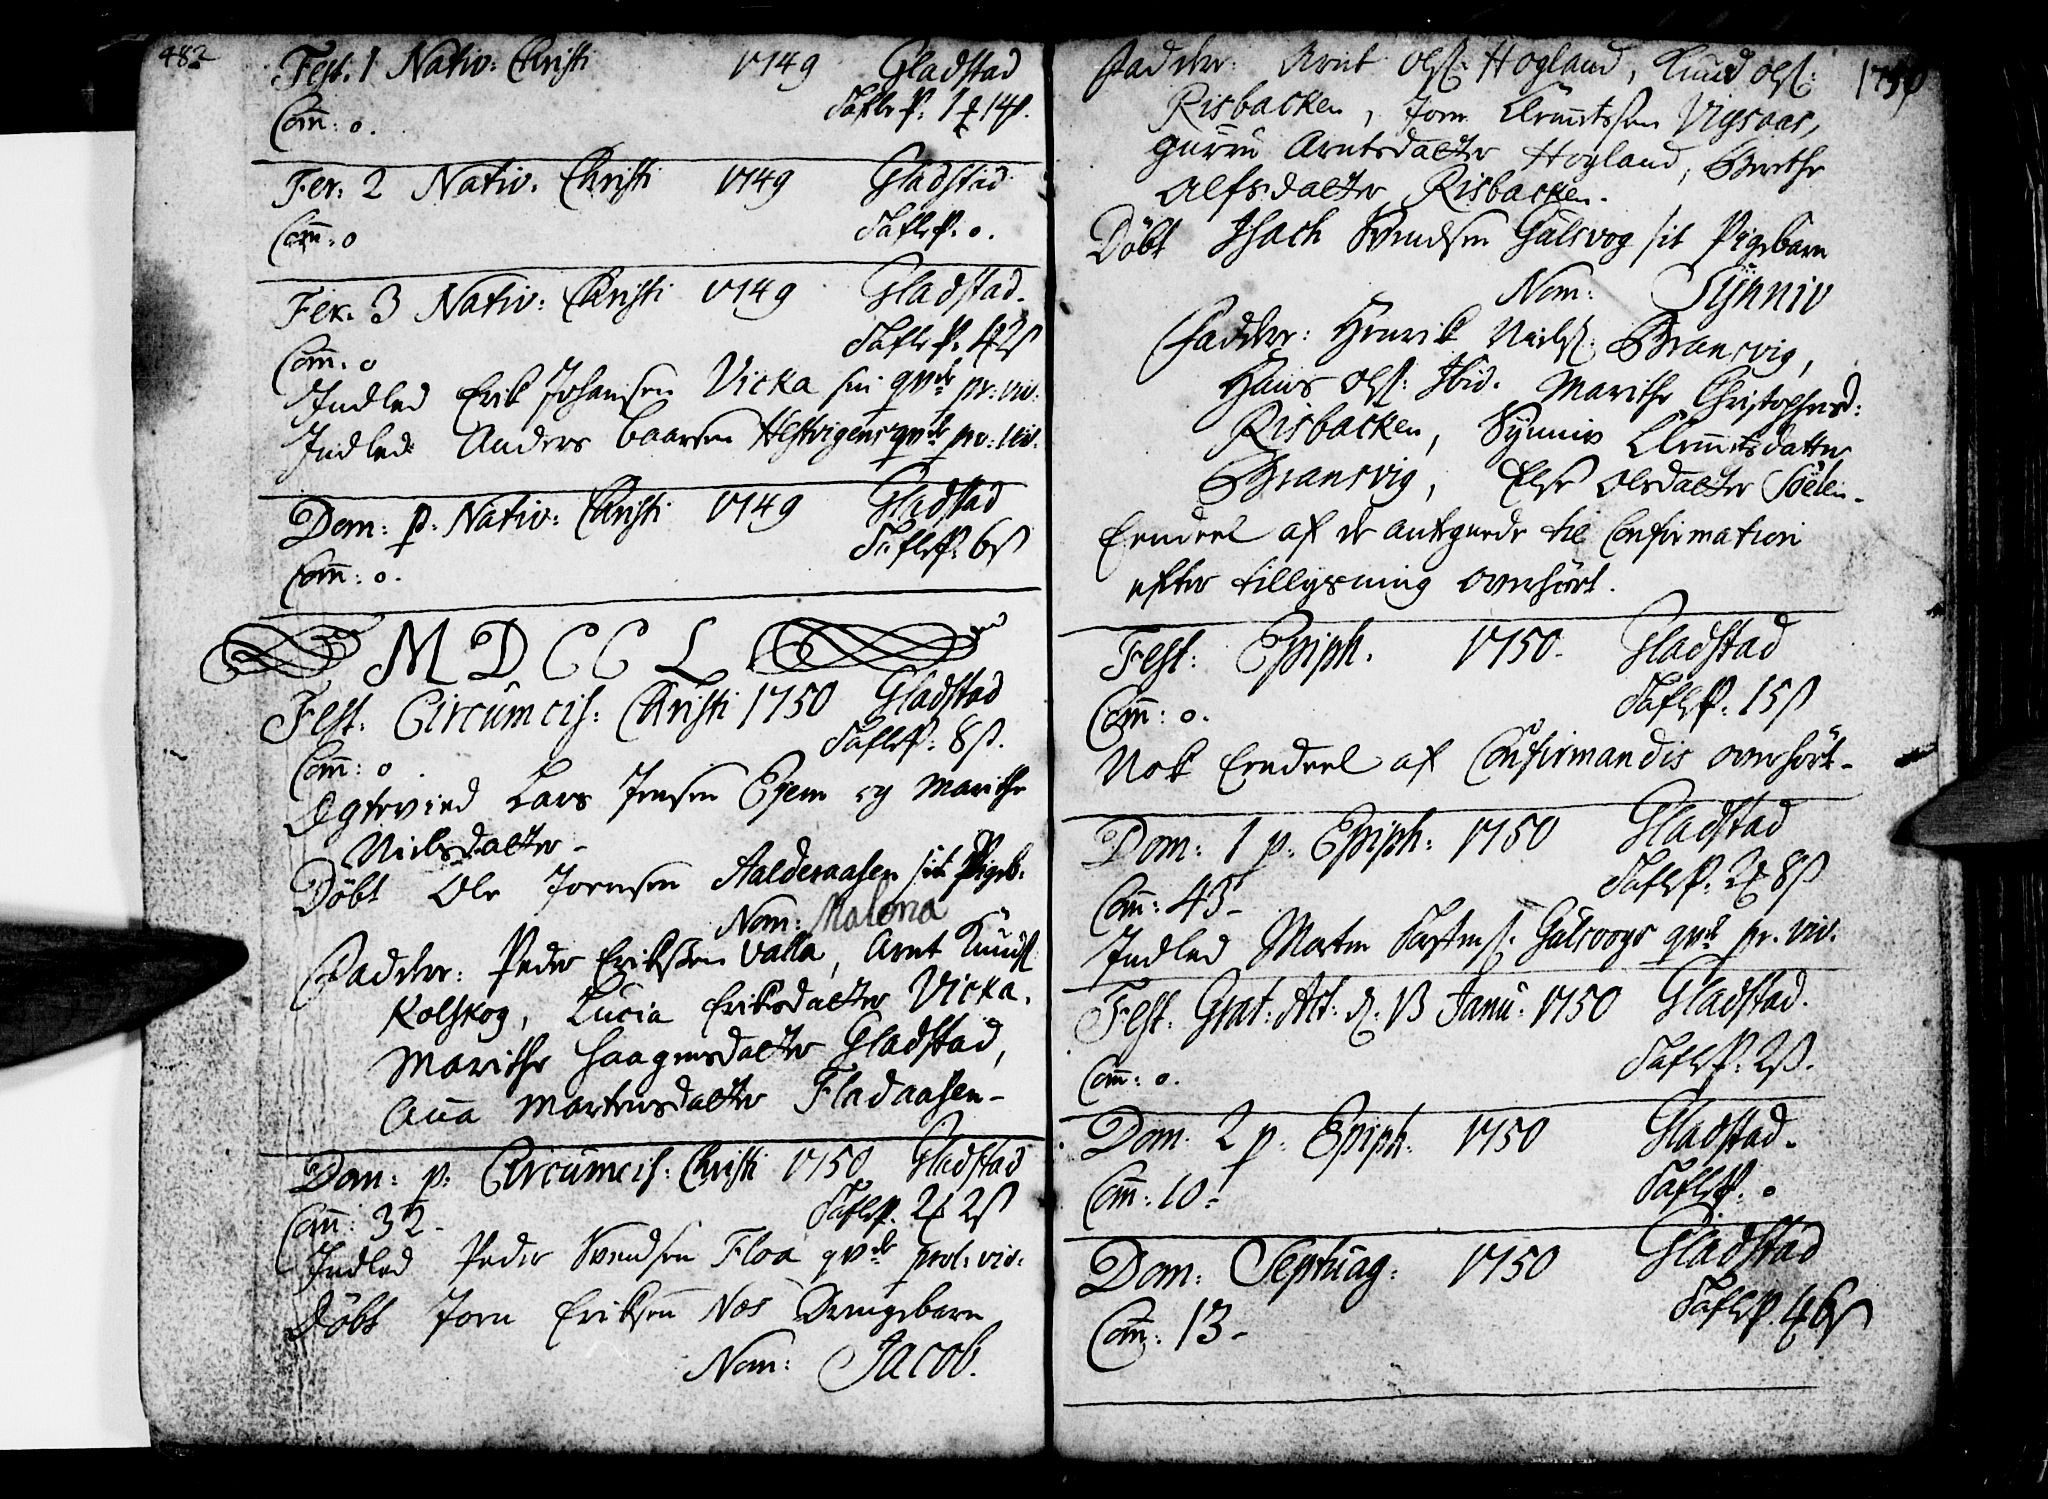 482
Fest. 1 Nativ: Christi 1749 Gladstad
Com: 0. Tafle P: 1 14
Fer: 2 Nativ. Christi 1749 Gladstad
Com: 0 Tafle P: 0.
Fer. 3 Nativ: Christi 1749 Gladstad.
Com. 0 Tafle P.
Indled Erik Johansen Vicka sin qvde pr: vir:
Indled Anders Baarsen Hestvigens qvde pr: vir.
Dom: p. Nativ: Christi 1749 Gladstad
Com: 0. Tafle P: 6 ß
MDCCL
Fest: Circumcis: Christi 1750 Gladstad
Com: 0. Tafle P: 8 ß.
Egtevied Lars Jensen og Marithe
Nielsdatter -
Döbt Ole Joensen Aalderaasen sit Pigeb:
Nom: Malena
Fadder: Peder Eriksen Valla, Arnt Knuds:
Kolskog, Lucia Eriksdatter Vicka.
Marithe Haagensdatter Gladstad,
Anna Mortensdatter Fladaasen -
Dom: p: Circumcis: Christi 1750 Gladstad
Com: 32 - Tafle P. 2 2 ß
Indled Peder Svendsen Floa qvde prol: vir:
Döbt Joen Eriksen Næs Drengebarn
Nom: Jacob.
1750
Fadder: Arnt Ols: Hogland, Knud Ols:
Risbacken, Joen Klemetsen Vigsaas,
Guru Arntsdatter Hogland, Berethe
Olfsdatter Risbacken.
Döbt Isach Svendsen Gulsvog sit Pigebarn
Nom: Synniv
Fadder: Henrik Niels: Bransvig,
Hans Ols: Ibid. Marithe Christophersd:
Risbacken, Synniv Klemetsdatter
Bransvig, Else Olsdatter Söelen -
Eendeel af de antegnede til Confirmation
efter tillysning overhört.
Fest: Epiph. 1750 - Gladstad
Com: 0. Tafle P: 15 ß
Nok Eendeel af Confirmandis overhört -
Dom: 1 p: Epiph: 1750 Gladstad
Com: 43 - Tafle P: 2 8 ß
Indled Morten Gulsvogs qvde pr. vir.
Fest. Grat: Act: d. 13 Janu: 1750 Gladstad.
Com: 0. Tafle P: 2 ß.
Dom. 2 p. Epiph: 1750 Gladstad -
Com: 10 - Tafle P: 0
Dom: Septuag: 1750 Gladstad
Com: 13 - Tafle P. 4 6 ß